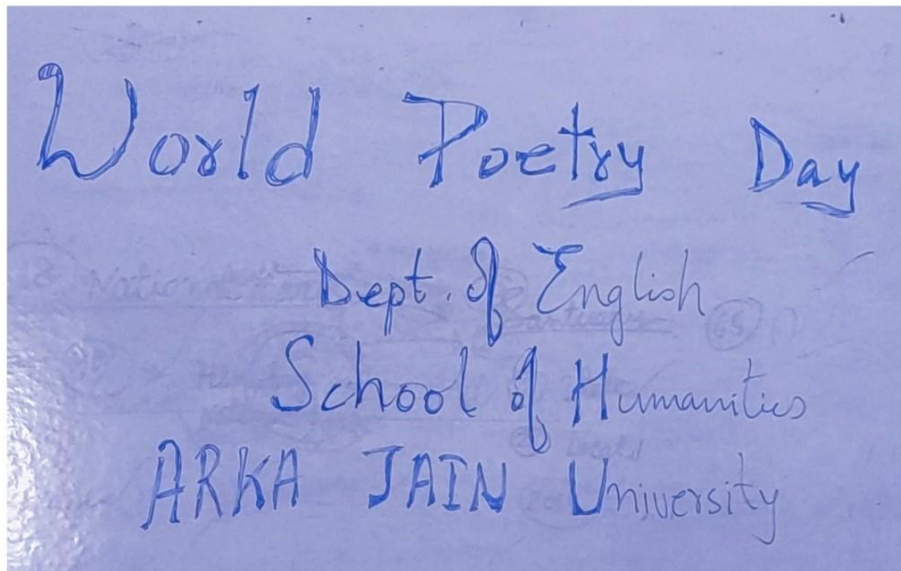 World Poetry Day
Dept. of English
School of Humanities
ARKA JAIN University